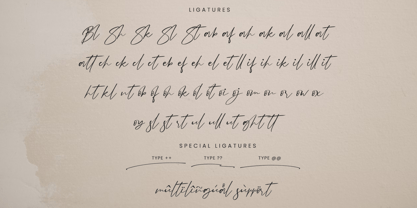 LIGATURES
Bl Sh Sk Sl St ab af ah ak al all at
att ch ck cl ct eb ef eh el et ell if ih ik il ill it
ht kl nt ob of oh ok ol ot oi oj om on or ow ox
oy sl st rt ul ull ut ght tt
SPECIAL LIGATURES
TYPE ++ TYPE ?? TYPE @@
multilingual support